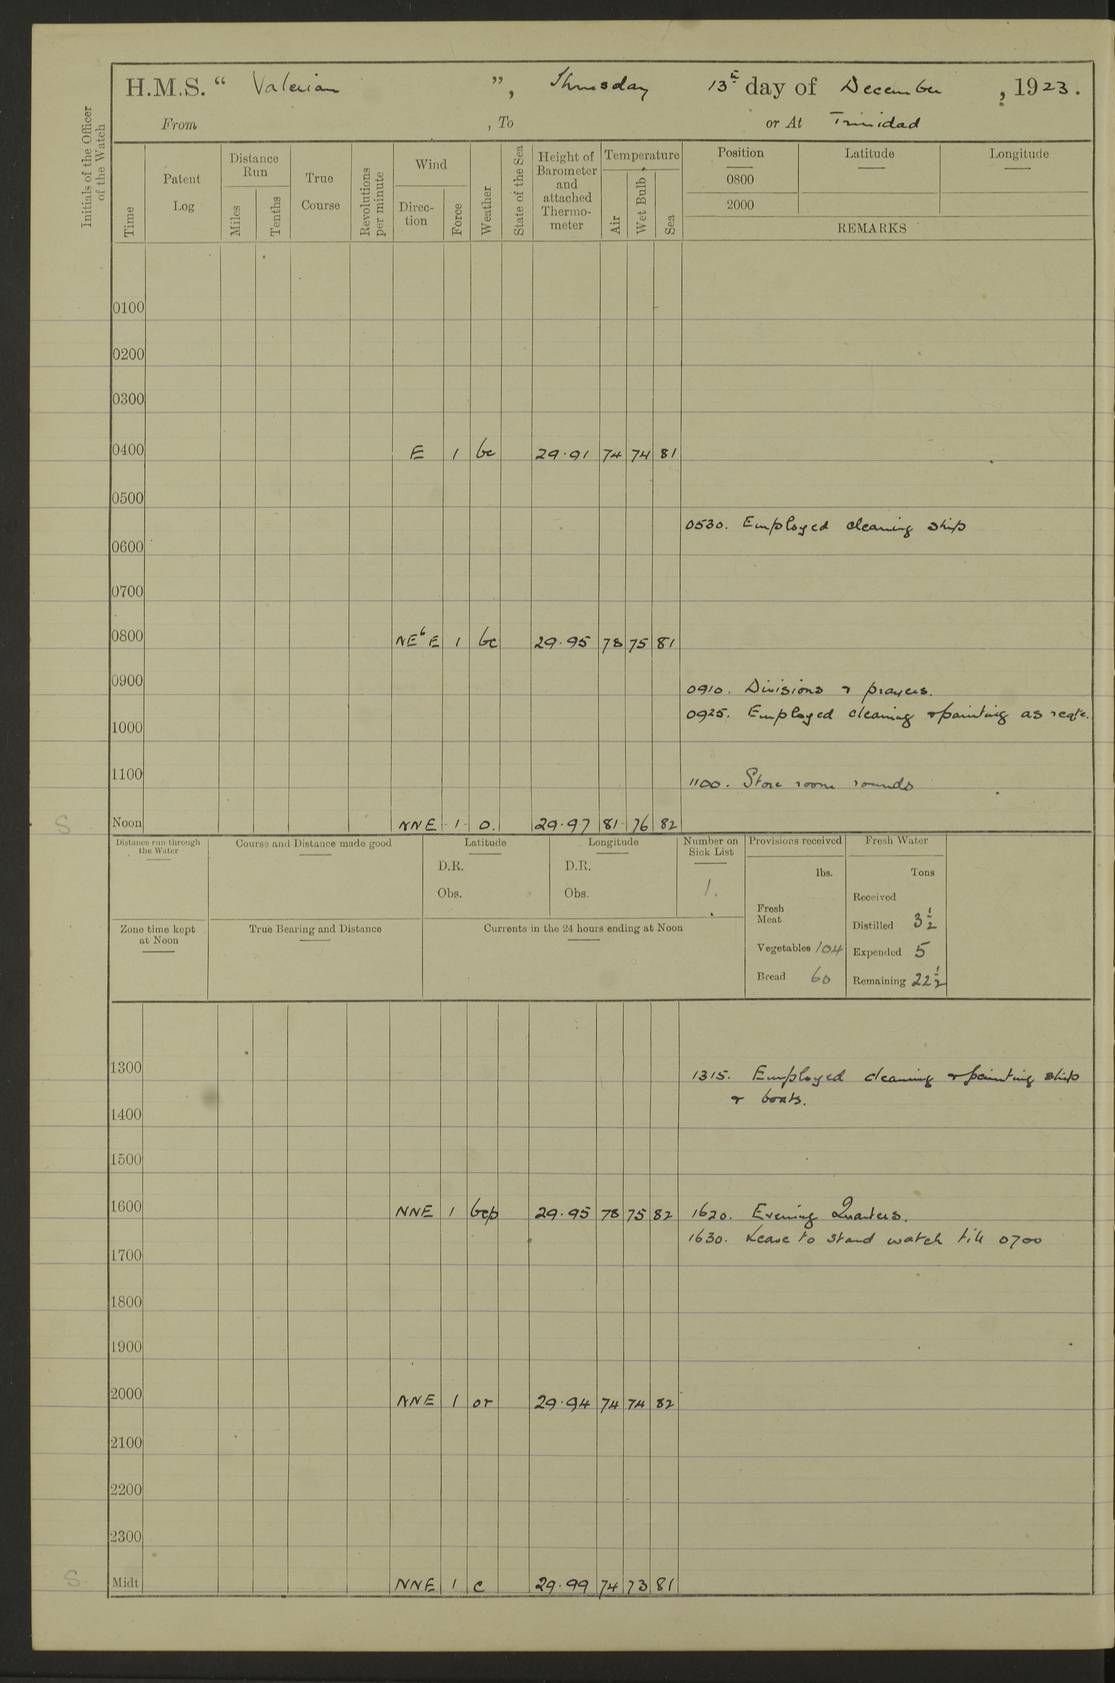 H.M.S. “ Valerian ”, Thursday 13th day of December, 1923.
From , To or At Trinidad
Initials of the Officer of the Watch
Time
Patent Log
Distance Run
Miles
Tenths
True Course
Revolutions per minute
Wind
Direction
Force
Weather
State of the Sea
Height of Barometer and attached Thermometer
Temperature
Air
Wet Bulb
Sea
Position Latitude Longitude
0800
2000
REMARKS
0100
0200
0300
0400 E 1 bc 29.91 74 74 81
0500
0530. Employed cleaning ship
0600
0700
0800 NEbE 1 bc 29.95 78 75 81
0900
0910. Divisions & prayers.
0925. Employed cleaning & painting as reqte.
1000
1100
1100. Store room rounds
S Noon NNE 1 o. 29.97 81 76 82
Distance run through the Water
Course and Distance made good
Latitude
D.R.
Obs.
Longitude
D.R.
Obs.
Number on Sick List
1.
Provisions received
lbs.
Fresh Meat
Vegetables 104
Bread 60
Fresh Water
Tons
Received
Distilled 3½
Expended 5
Remaining 22½
Zone time kept at Noon
True Bearing and Distance
Currents in the 24 hours ending at Noon
1300
1315. Employed cleaning & painting ship
& boats.
1400
1500
1600 NNE 1 bcp 29.95 78 75 82 1620. Evening Quarters.
1630. Leave to stand watch till 0700
1700
1800
1900
2000 NNE 1 or 29.94 74 74 82
2100
2200
2300
S. Midt. NNE 1 c 29.99 74 73 81